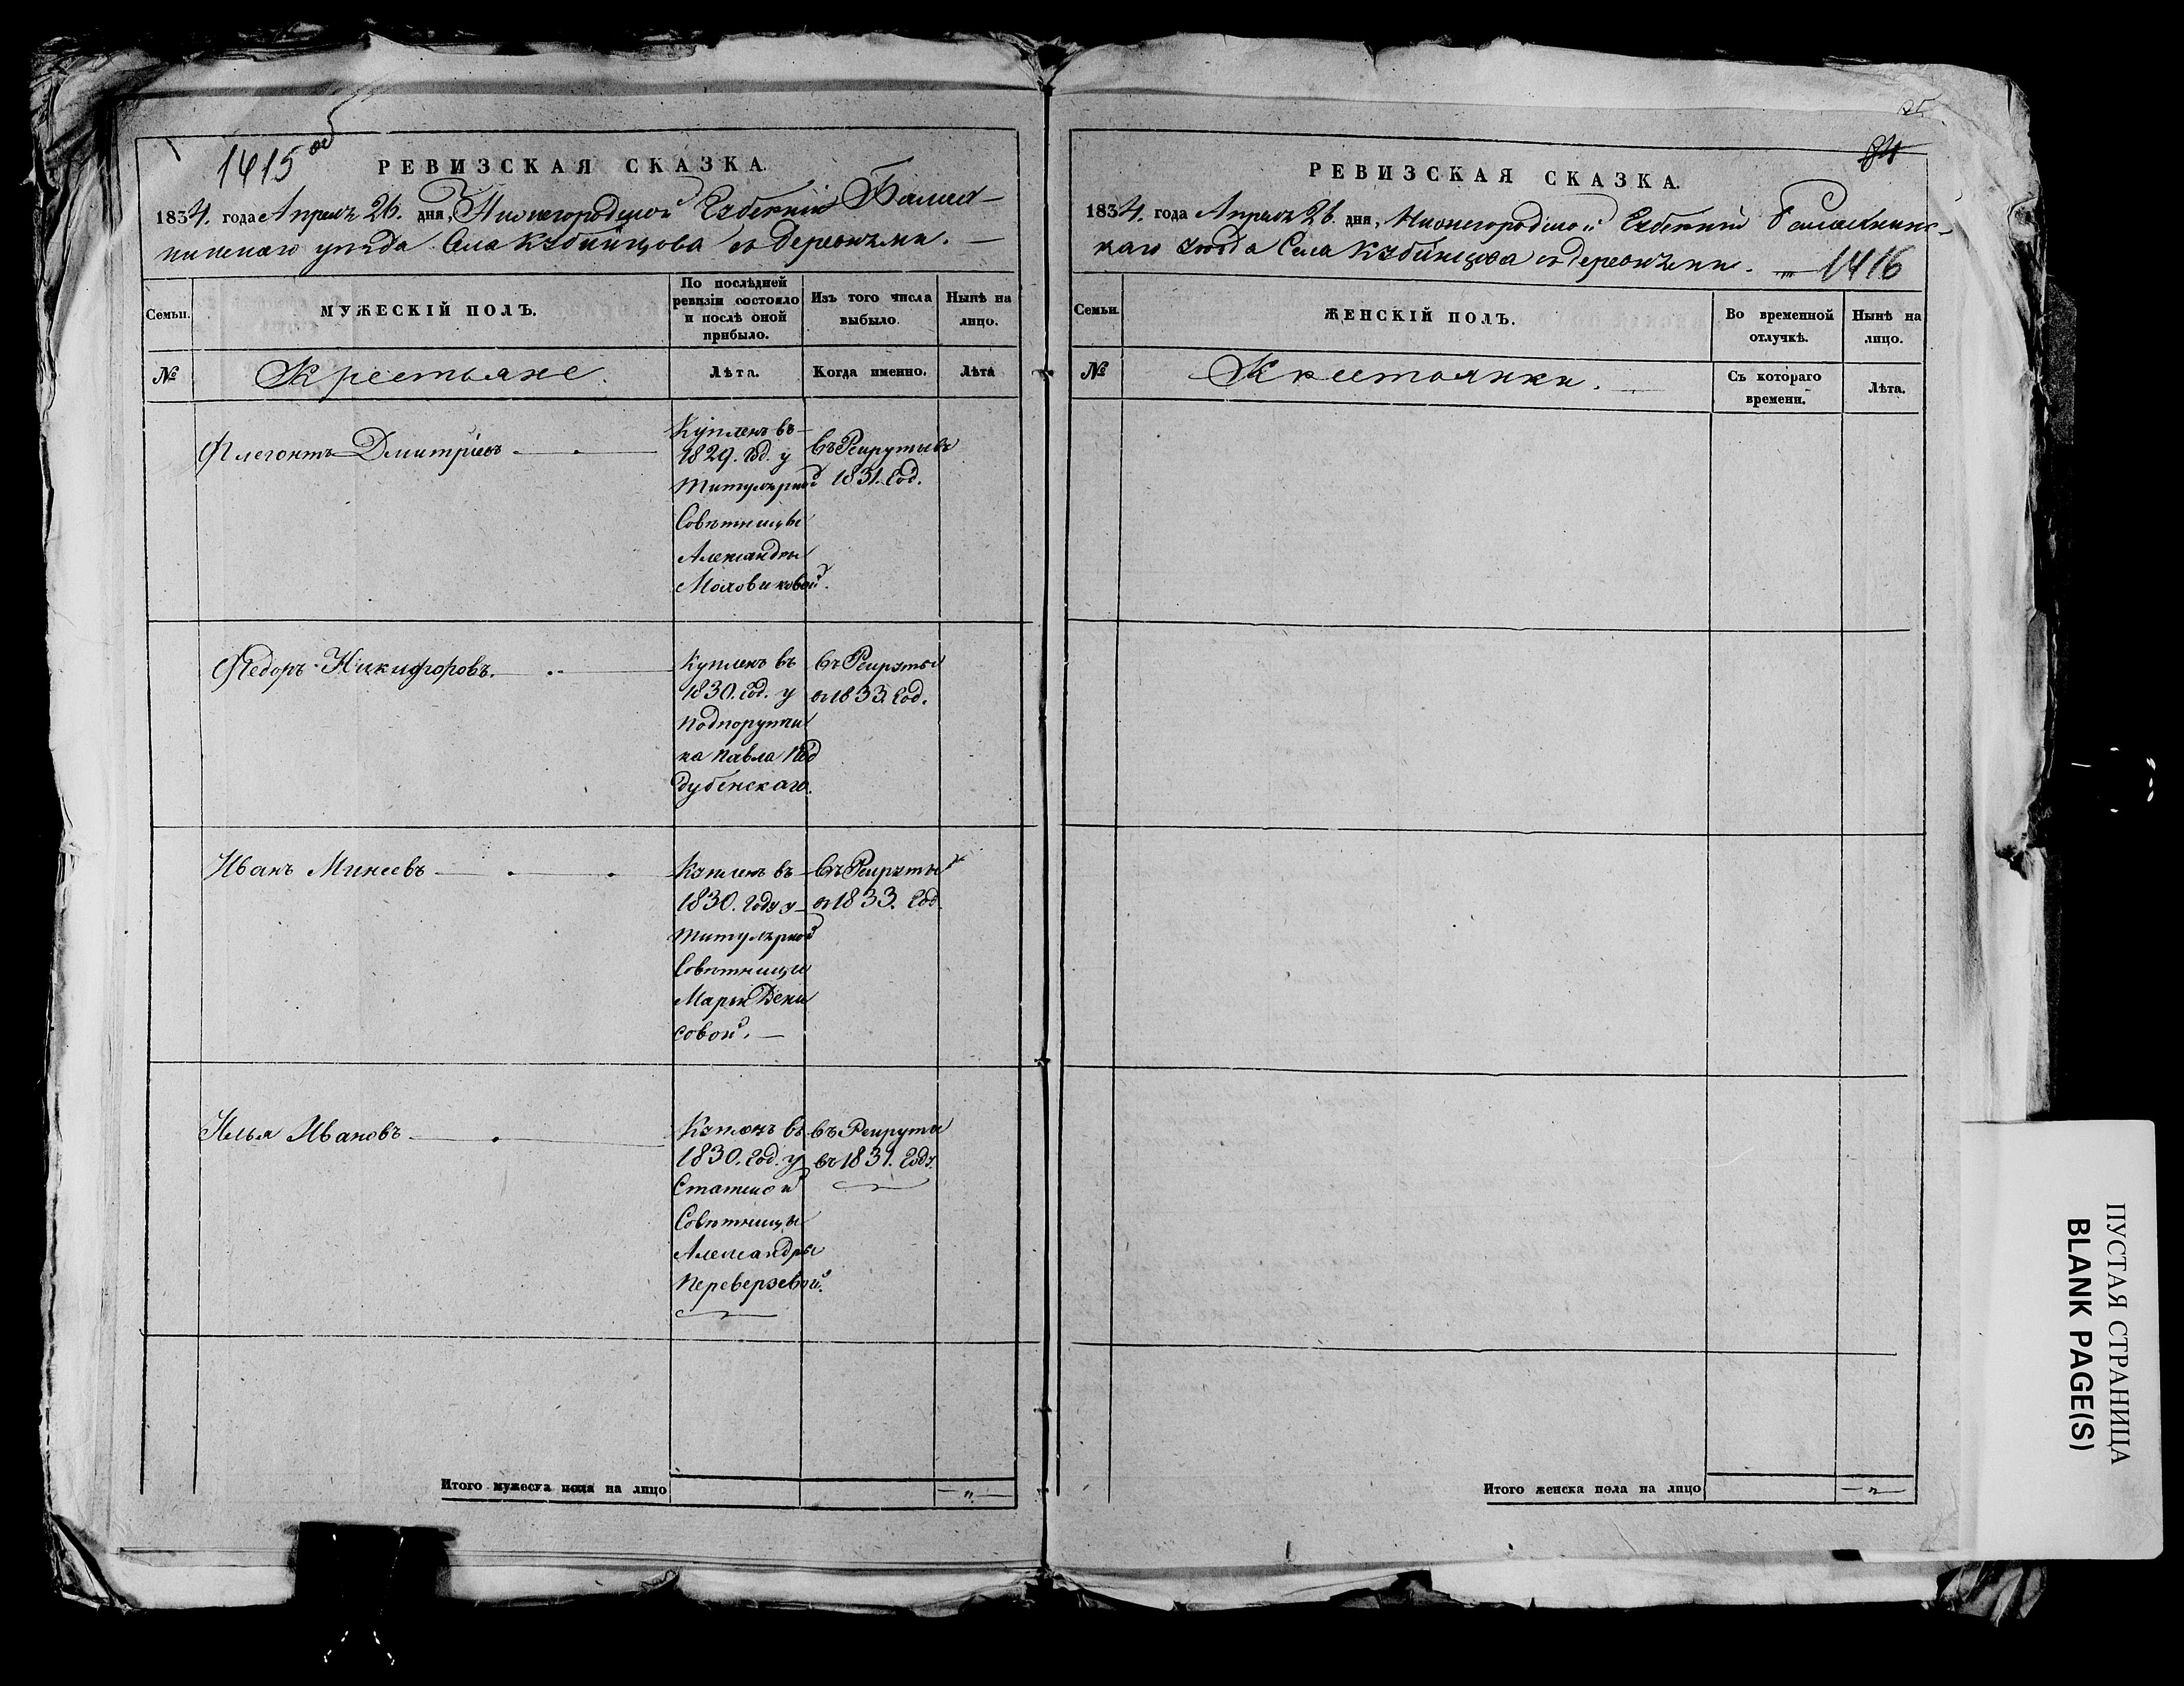 1415 об
РЕВИЗСКАЯ СКАЗКА.
1834. года Апреля 26. дня, Нижегородской Губернии Балах-
нинскаго уезда Села Кубинцова съ деревнями.
Семьи.
МУЖЕСКІЙ ПОЛЪ.
По послѣдней
ревизіи состояло
и послѣ оной
прибыло.
Изъ того числа
выбыло.
Нынѣ на
лицо.
№
Крестьяне.
Лѣта.
Когда именно.
Лѣта
Флегонтъ Дмитріевъ
Купленъ въ
1829. год. у
Титулярной
Совѣтницы
Александры
Въ Рекруты въ
1831. Год.
Федоръ Никифоровъ.
Купленъ въ
1830. Год. у
подпоручи
ка Павла Под
дубенскаго.
Въ Рекруты
въ 1833. Год.
Иванъ Минеевъ
Купленъ въ
1830. Году у
Титулярной
Совѣтницы
Марьи Дени
совой.
Въ Рекруты
въ 1833. Год.
Илья Ивановъ
Купленъ въ
1830. Год. у
Статской
Совѣтницы
Александры
Переверзевой.
въ Рекруты
въ 1831. Году.
Итого мужеска пола на лицо
— „ —
84
РЕВИЗСКАЯ СКАЗКА.
1834. года Апреля 26. дня, Нижегородской Губерніи Балахнинс-
каго уезда Села Кубинцова съ деревнями.
1416
Семьи.
ЖЕНСКІЙ ПОЛЪ.
Во временной
отлучкѣ.
Нынѣ на
лицо.
№
Крестьянки.
Съ котораго
времени.
Лѣта.
Итого женска пола на лицо
— „ —
ПУСТАЯ СТРАНИЦА
BLANK PAGE(S)